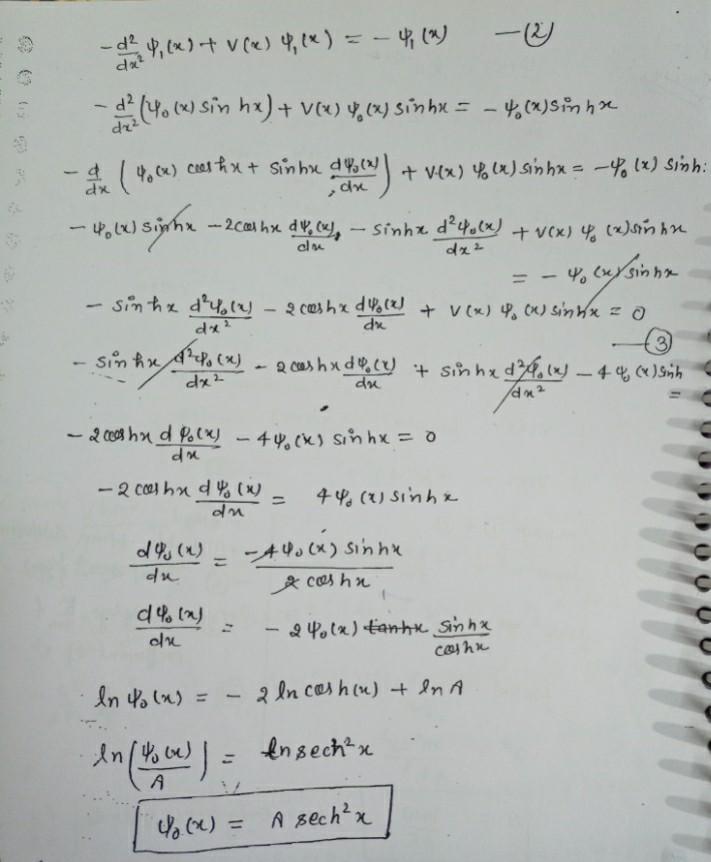 - d²/dx² ψ₁(x) + V(x) ψ₁(x) = - ψ₁(x) — (2)
- d²/dx² (ψ₀(x) sin hx) + V(x) ψ₀(x) sinhx = - ψ₀(x) sinhx
- d/dx ( ψ₀(x) coshx + sinhx dψ₀(x)/dx ) + V(x) ψ₀(x) sinhx = -ψ₀(x) sinh:
- ψ₀(x) sinhx - 2coshx dψ₀(x)/dx - sinhx d²ψ₀(x)/dx² + V(x) ψ₀(x) sinhx
= - ψ₀(x) sinhx
- sinhx d²ψ₀(x)/dx² - 2coshx dψ₀(x)/dx + V(x) ψ₀(x) sinhx = 0
— (3)
- sinhx d²ψ₀(x)/dx² - 2coshx dψ₀(x)/dx + sinhx d²ψ₀(x)/dx² - 4ψ₀(x) sinh
=
- 2coshx dψ₀(x)/dx - 4ψ₀(x) sinhx = 0
- 2coshx dψ₀(x)/dx = 4ψ₀(x) sinhx
dψ₀(x)/dx = -4ψ₀(x) sinhx / 2 coshx
dψ₀(x)/dx = - 2ψ₀(x) tanhx sinhx/coshx
ln ψ₀(x) = - 2 ln cosh(x) + ln A
ln(ψ₀(x)/A) = ln sech²x
ψ₀(x) = A sech²x